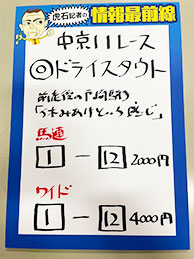 虎石記者の
情報最前線
中京11レース
◎ドライスタウト
前走後の戸崎騎手
「休みあけという感じ」
馬連
1－12 2000円
ワイド
1－12 4000円